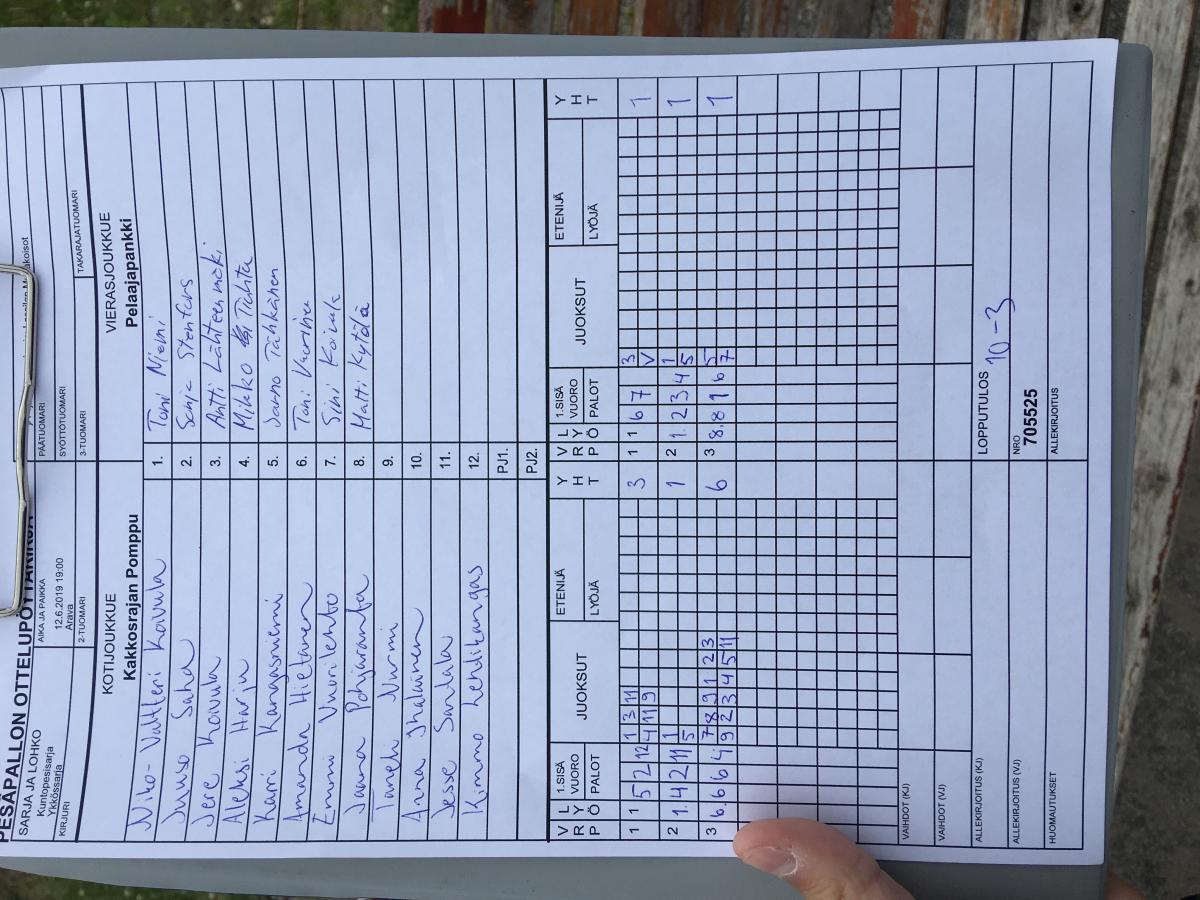 PESÄPALLON OTTELUPÖYTÄKIRJA
SARJA JA LOHKO
Kuntopesisarja
Ykkössarja
AIKA JA PAIKKA
12.6.2019 19:00
Arava
PÄÄTUOMARI
SYÖTTÖTUOMARI
KIRJURI
2-TUOMARI
3-TUOMARI
TAKARAJATUOMARI
KOTIJOUKKUE
Kakkosrajan Pomppu
VIERASJOUKKUE
Pelaajapankki
Niko-Valtteri Koivula 1. Toni Niemi
Juuso Saha 2. Senja Stenfors
Jere Koivula 3. Antti Lähteenmäki
Aleksi Harju 4. Mikko Tichta
Kari Kangasniemi 5. Jarno Tähkänen
Amanda Hietanen 6. Toni Vuorinen
Emmi Vuorilehto 7. Sini Koivula
Jaana Pohjanranta 8. Matti Kytölä
Taneli Nurmi 9.
Anna Ihalainen 10.
Jesse Santala 11.
Kimmo Lehdikangas 12.
PJ1.
PJ2.
V R P L Y Ö 1.SISÄ VUORO PALOT JUOKSUT ETENIJÄ LYÖJÄ Y H T V R P L Y Ö 1.SISÄ VUORO PALOT JUOKSUT ETENIJÄ LYÖJÄ Y H T
1 1 5 2 12 1 3 11 3 1 1 6 7 3 1
4 11 9 V
2 1. 4 2 11 1 1 2 1. 2 3 4 1 1
5 5
3 6. 6 6 4 7 8 9 1 2 3 6 3 8. 8 1 6 5 1
9 2 3 4 5 11 7
VAIHDOT (KJ)
VAIHDOT (VJ)
ALLEKIRJOITUS (KJ)
LOPPUTULOS 10-3
ALLEKIRJOITUS (VJ)
NRO
705525
HUOMAUTUKSET
ALLEKIRJOITUS